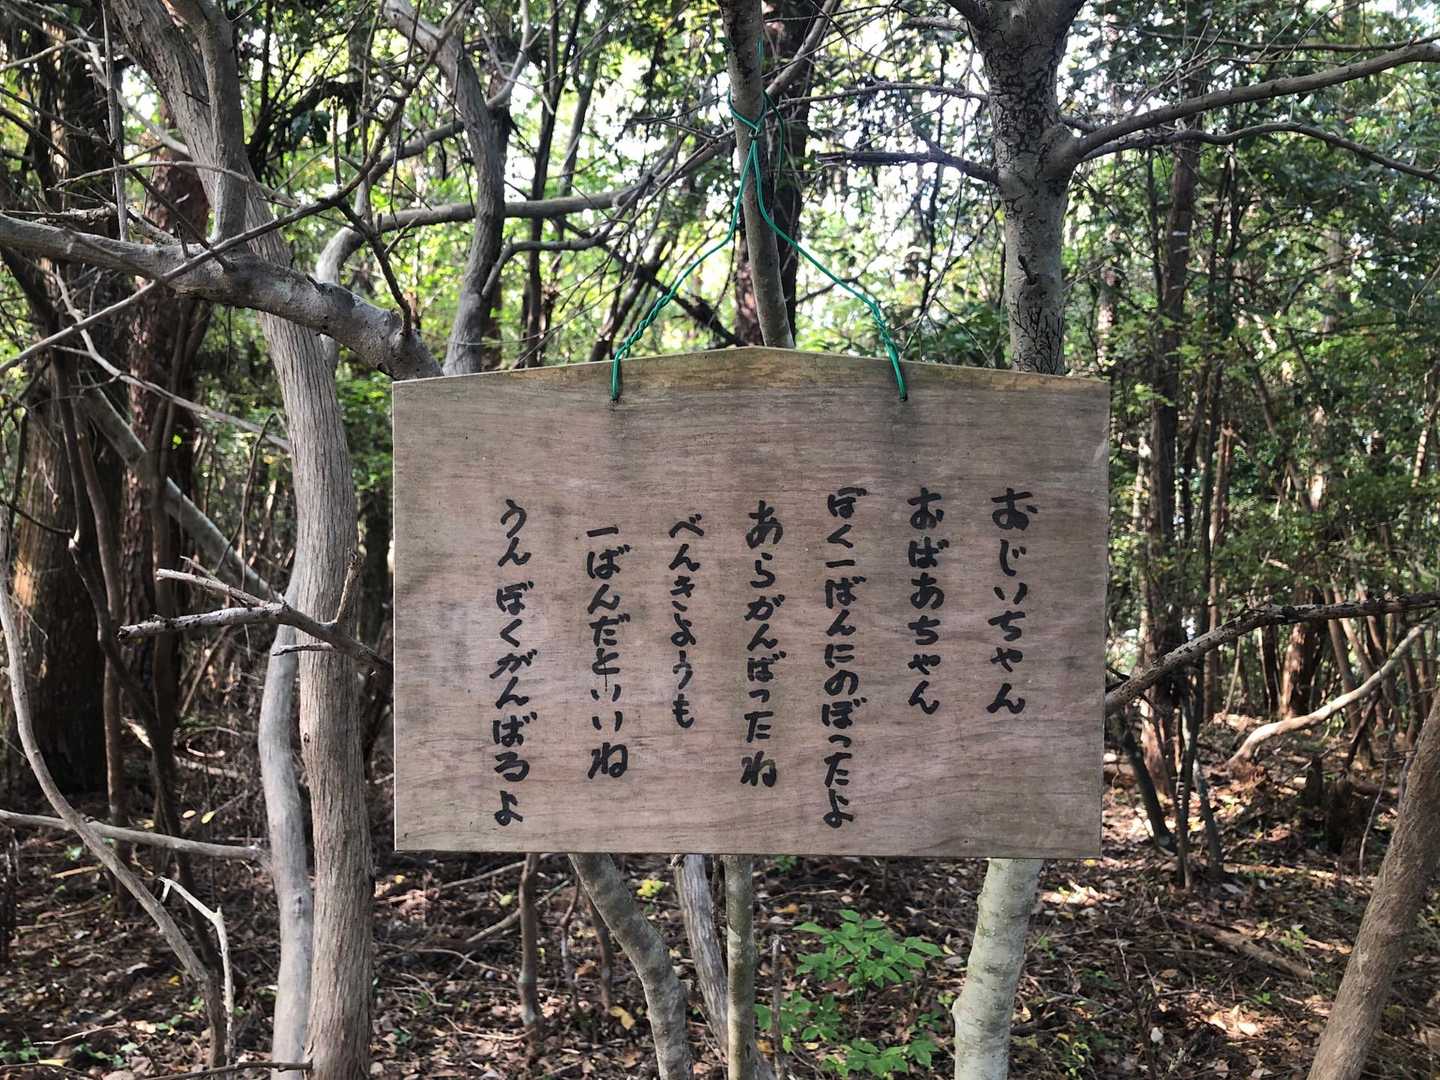 おじいちゃん
おばあちゃん
ぼく一ばんにのぼったよ
あらがんばったね
べんきょうも
一ばんだといいね
うんぼくがんばるよ